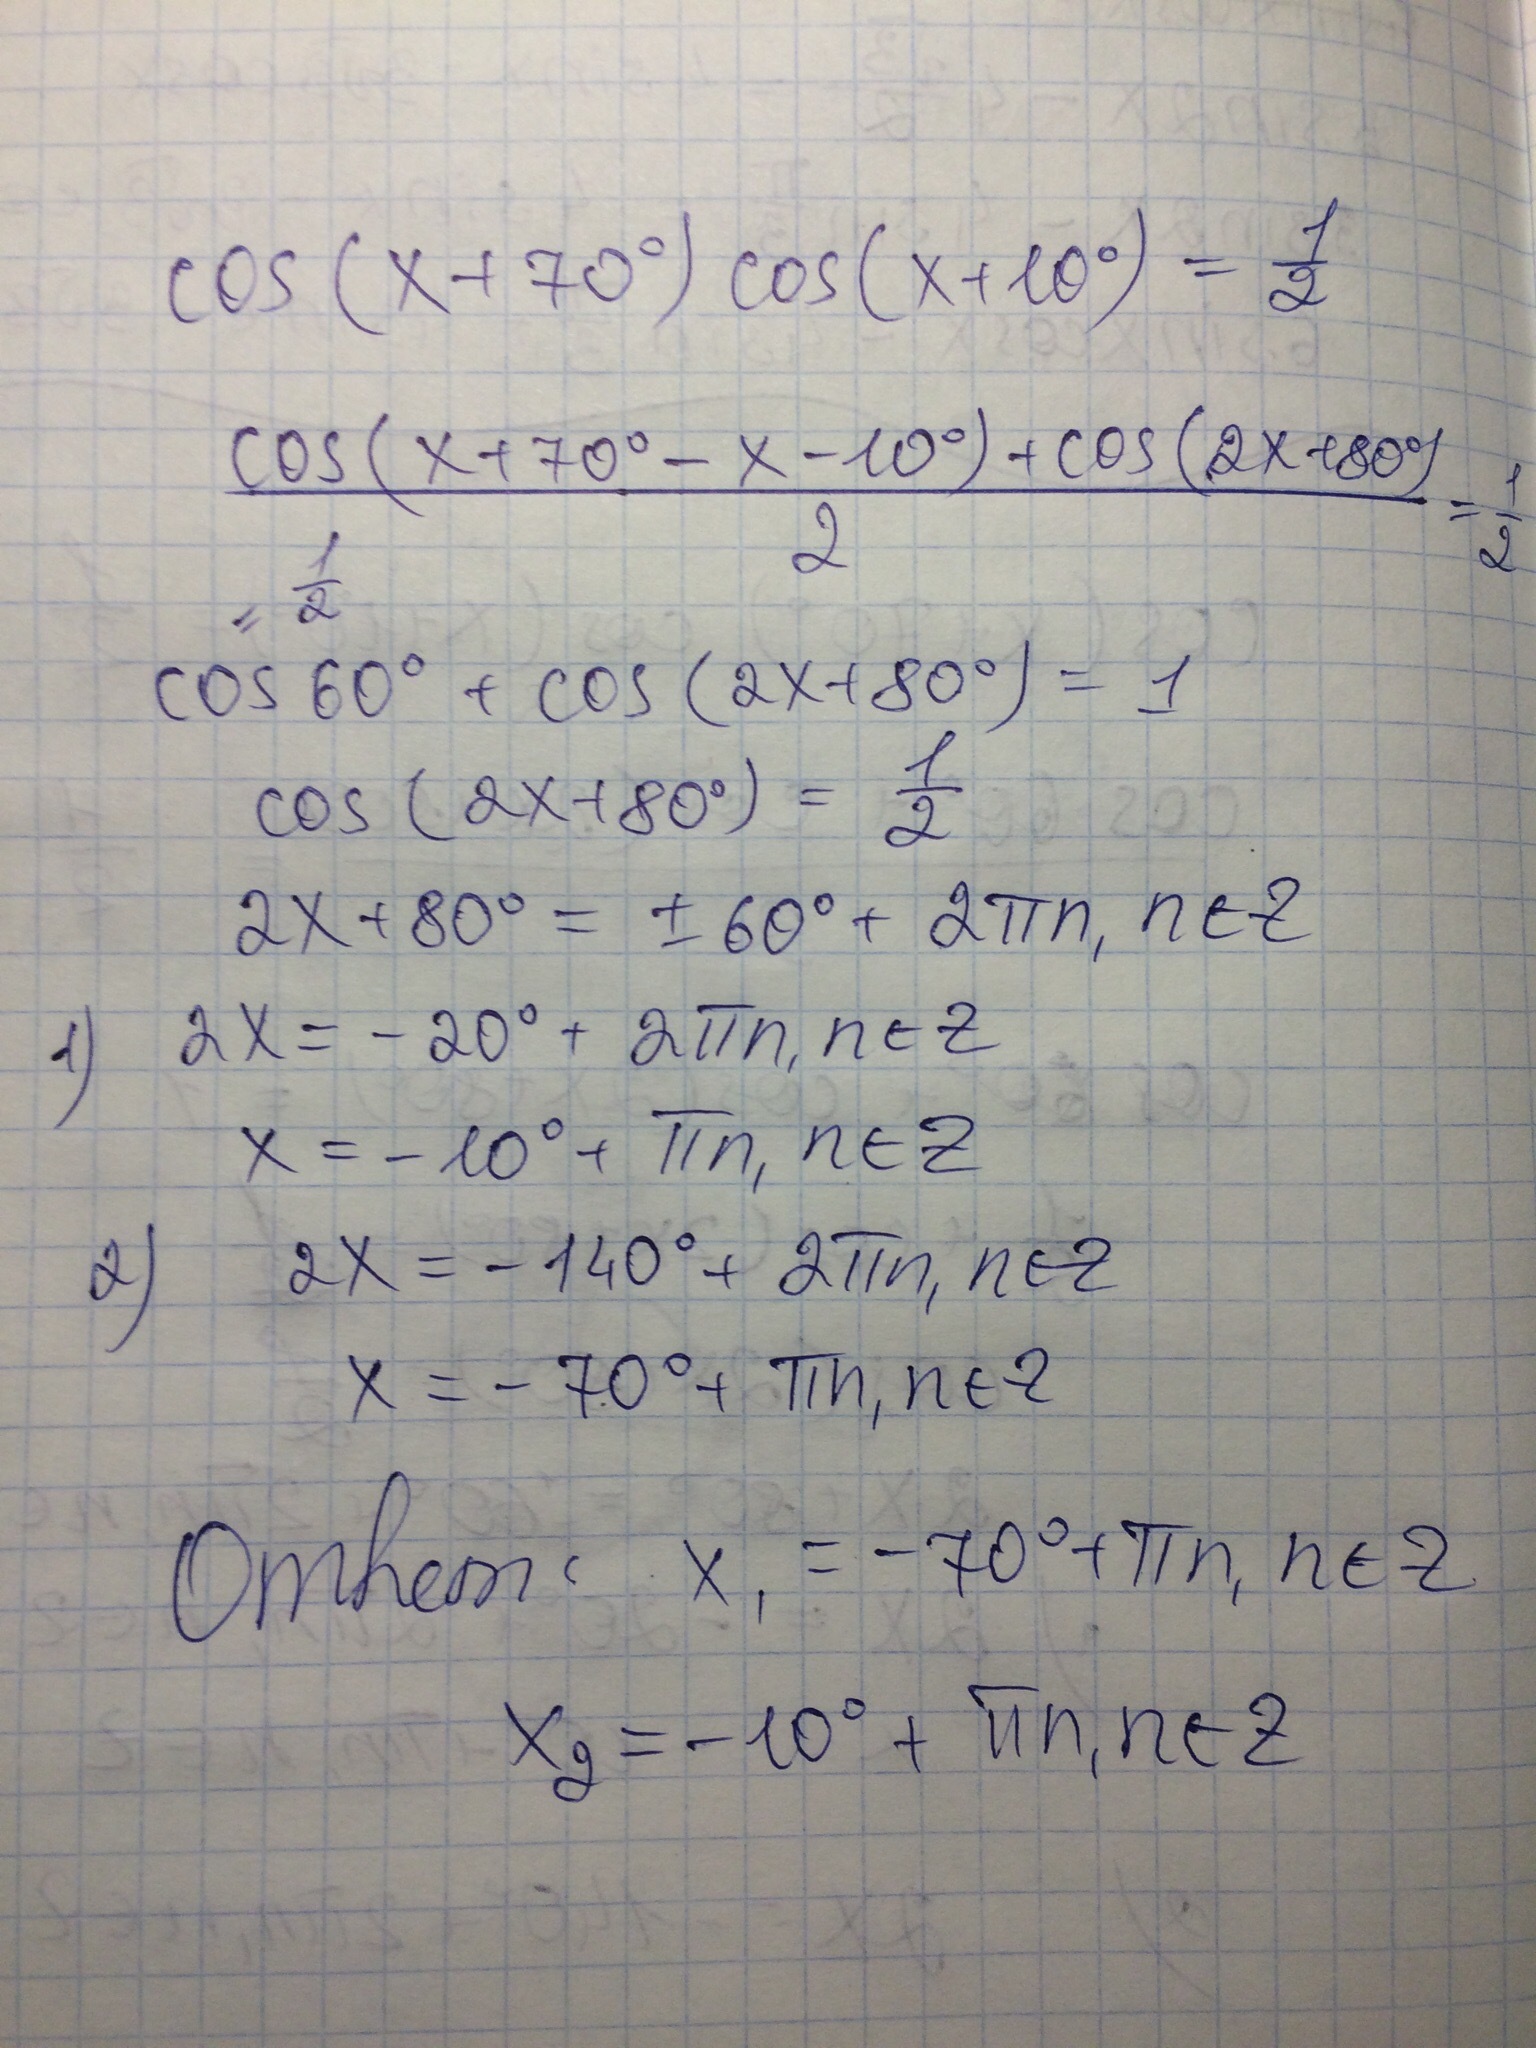 cos(x+70°) cos(x+10°) = 1/2
cos(x+70°-x-10°)+cos(2x+80°) / 2 = 1/2
= 1/2
cos 60° + cos(2x+80°) = 1
cos(2x+80°) = 1/2
2x+80° = ±60° + 2πn, n∈Z
1) 2x = -20° + 2πn, n∈Z
x = -10° + πn, n∈Z
2) 2x = -140° + 2πn, n∈Z
x = -70° + πn, n∈Z
Ответ: x₁ = -70° + πn, n∈Z
x₂ = -10° + πn, n∈Z